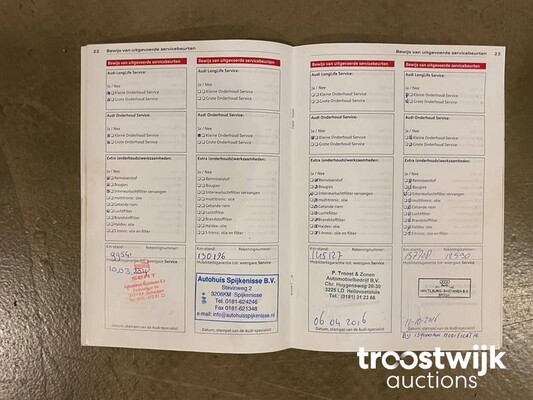 22 Bewijs van uitgevoerde servicebeurten
Bewijs van uitgevoerde servicebeurten
Audi LongLife Service:
Ja / Nee
Kleine Onderhoud Service
Grote Onderhoud Service
Audi Onderhoud Service:
Ja / Nee
Kleine Onderhoud Service
Grote Onderhoud Service
Extra (onderhouds)werkzaamheden:
Ja / Nee
Remvloeistof
Bougies
Interieurluchtfilter vervangen
multitronic: olie
Getande riem
Luchtfilter
Brandstoffilter
Haldex: olie
S tronic: olie en filter
Km-stand: Rekeningnummer:
99541
Mobiliteitsgarantie tot: weergave Service
SEAT
Datum, stempel van de Audi-specialist
Bewijs van uitgevoerde servicebeurten
Audi LongLife Service:
Ja / Nee
Kleine Onderhoud Service
Grote Onderhoud Service
Audi Onderhoud Service:
Ja / Nee
Kleine Onderhoud Service
Grote Onderhoud Service
Extra (onderhouds)werkzaamheden:
Ja / Nee
Remvloeistof
Bougies
Interieurluchtfilter vervangen
multitronic: olie
Getande riem
Luchtfilter
Brandstoffilter
Haldex: olie
S tronic: olie en filter
Km-stand: Rekeningnummer:
130196
Mobiliteitsgarantie tot: weergave Service
Autohuis Spijkenisse B.V.
Stevinweg 2
3208KM Spijkenisse
Tel. 0181-624246
Fax 0181-621348
e-mail: info@autohuisspijkenisse.nl
Datum, stempel van de Audi-specialist
Bewijs van uitgevoerde servicebeurten 23
Bewijs van uitgevoerde servicebeurten
Audi LongLife Service:
Ja / Nee
Kleine Onderhoud Service
Grote Onderhoud Service
Audi Onderhoud Service:
Ja / Nee
Kleine Onderhoud Service
Grote Onderhoud Service
Extra (onderhouds)werkzaamheden:
Ja / Nee
Remvloeistof
Bougies
Interieurluchtfilter vervangen
multitronic: olie
Getande riem
Luchtfilter
Brandstoffilter
Haldex: olie
S tronic: olie en filter
Km-stand: Rekeningnummer:
145127
Mobiliteitsgarantie tot: weergave Service
P. Troost & Zonen
Automobielbedrijf B.V.
Chr. Huygensweg 28-30
3225 LD Hellevoetsluis
Tel.: (0181) 31 23 66
06 04 2016
Datum, stempel van de Audi-specialist
Bewijs van uitgevoerde servicebeurten
Audi LongLife Service:
Ja / Nee
Kleine Onderhoud Service
Grote Onderhoud Service
Audi Onderhoud Service:
Ja / Nee
Kleine Onderhoud Service
Grote Onderhoud Service
Extra (onderhouds)werkzaamheden:
Ja / Nee
Remvloeistof
Bougies
Interieurluchtfilter vervangen
multitronic: olie
Getande riem
Luchtfilter
Brandstoffilter
Haldex: olie
S tronic: olie en filter
Km-stand: Rekeningnummer:
Mobiliteitsgarantie tot: weergave Service
Datum, stempel van de Audi-specialist
troostwijk
auctions